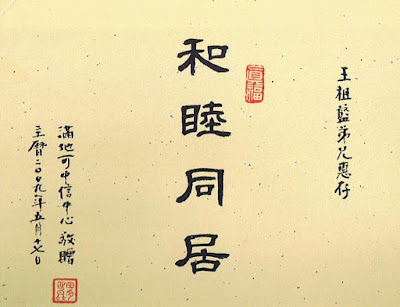 王祖藍弟兄惠存
和睦同居
滿地可中信中心 敬贈
主曆二〇〇九年五月十七日